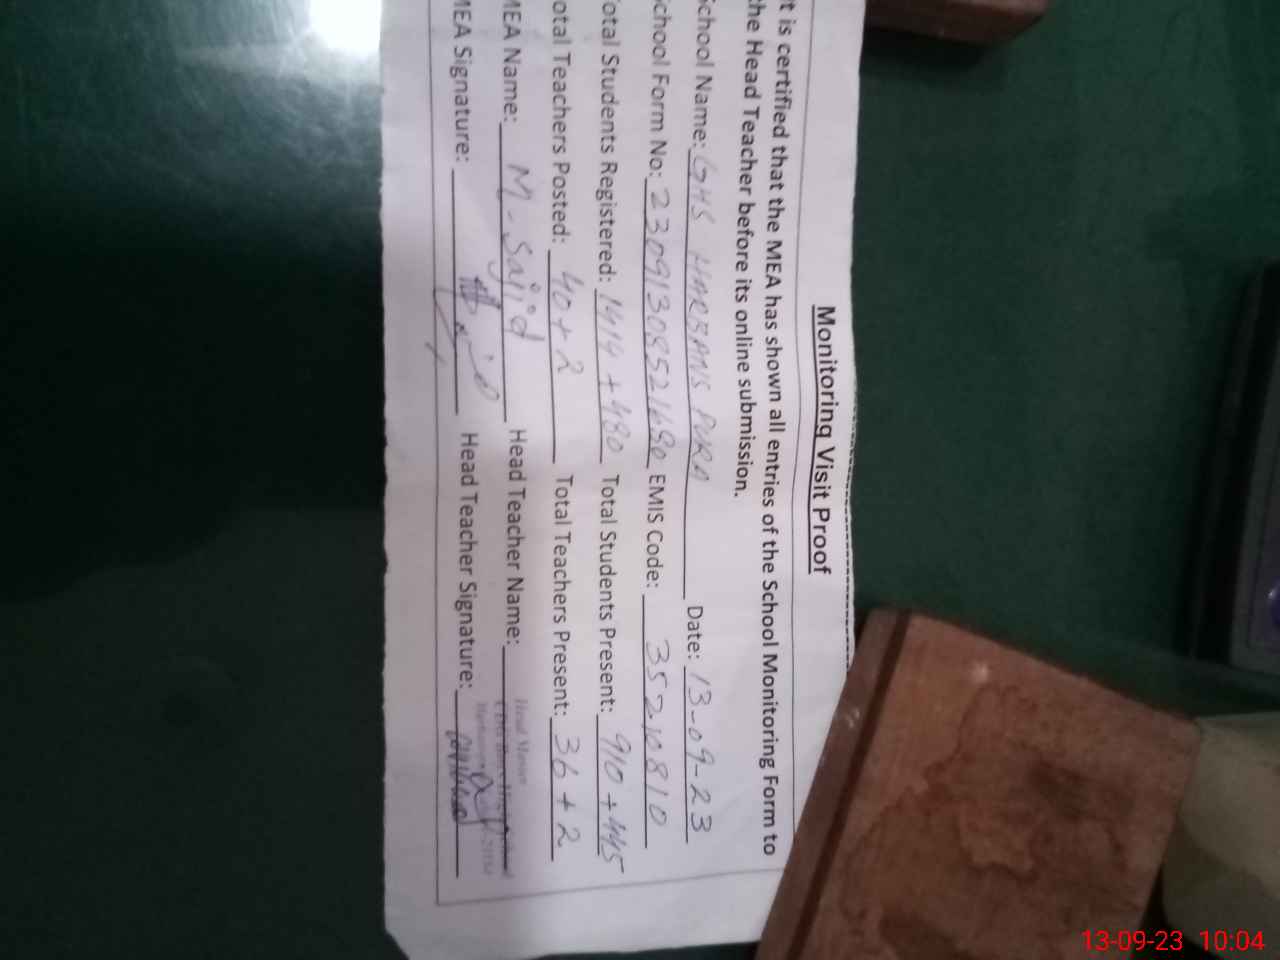 Monitoring Visit Proof
It is certified that the MEA has shown all entries of the School Monitoring Form to
the Head Teacher before its online submission.
School Name: GHS HARBANS PURA Date: 13-09-23
School Form No: 23091308521690 EMIS Code: 35210810
Total Students Registered: 1414 + 480 Total Students Present: 910 + 445
Total Teachers Posted: 40 + 2 Total Teachers Present: 36 + 2
MEA Name: M-Sajid Head Teacher Name:
Head Master
MEA Signature: Head Teacher Signature:
13-09-23 10:04